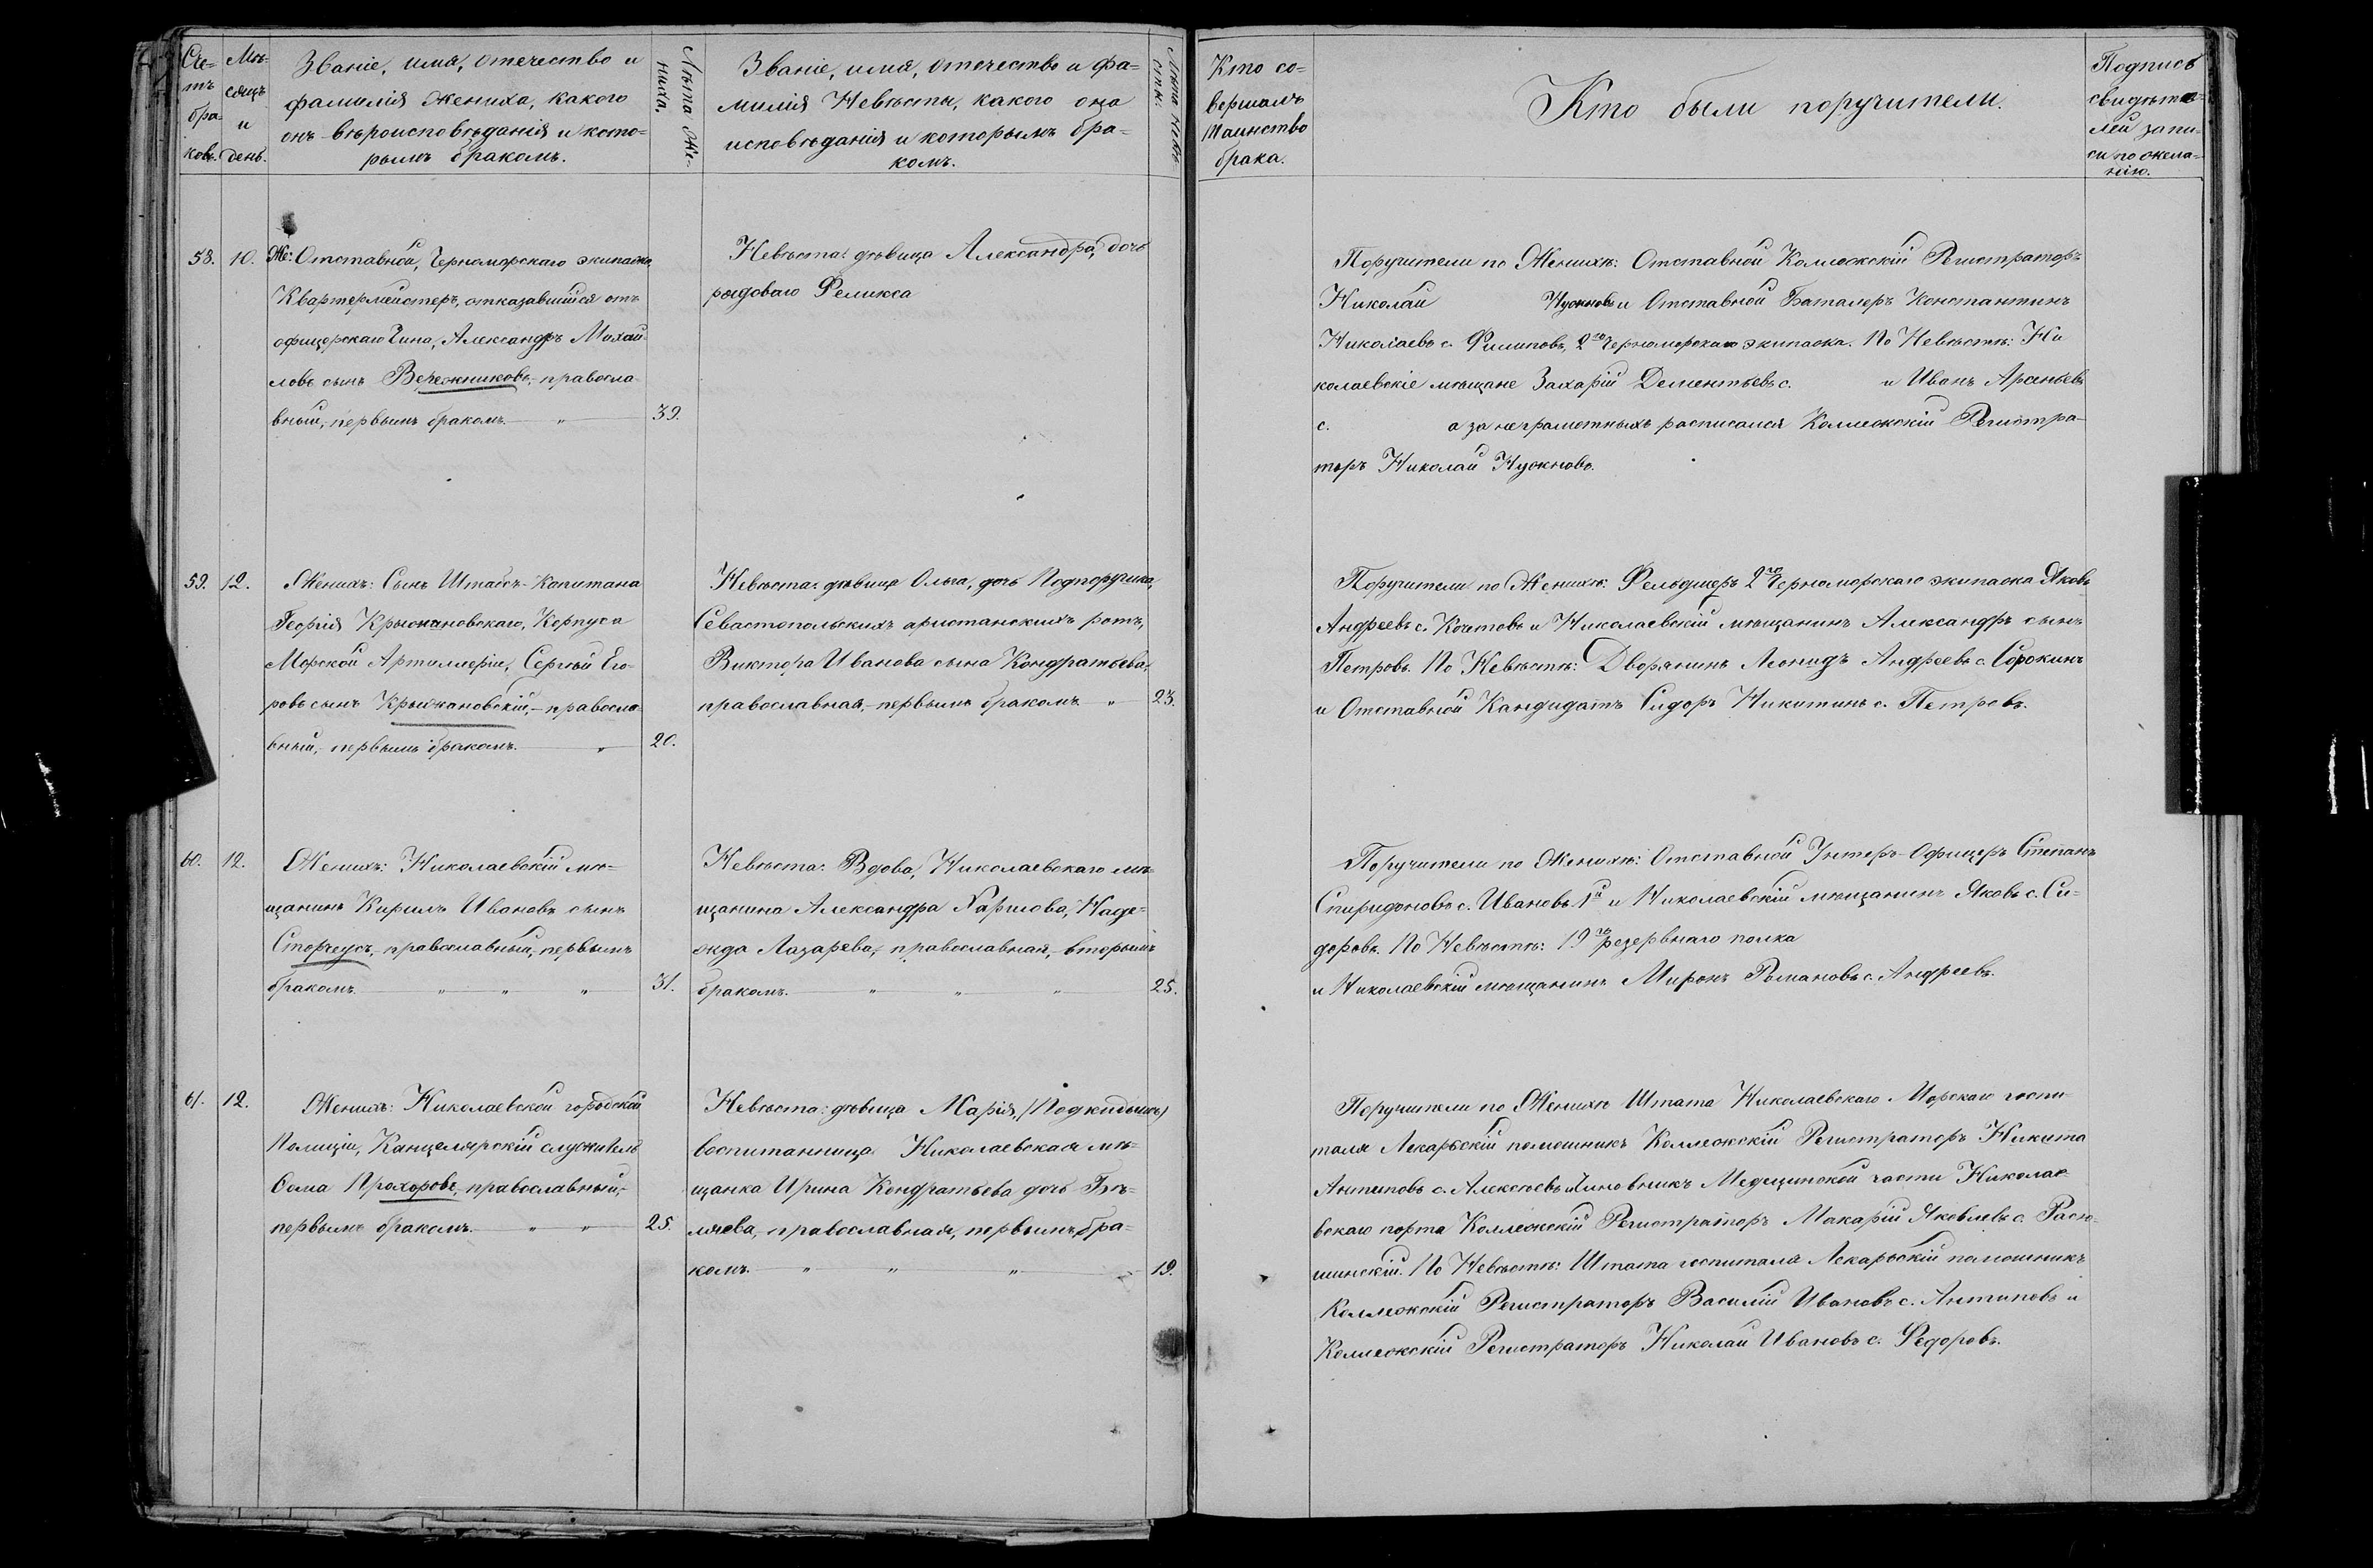 Сче-
тъ
бра-
ковъ.
Мѣ-
сяцъ
и
день.
Званіе, имя, отечество и
фамилія Жениха, какого
онъ вѣроисповѣданія и кото-
рымъ бракомъ.
Лѣта Же-
ниха.
Званіе, имя, отечество и фа-
милія Невѣсты, какого она
исповѣданія и которымъ бра-
комъ.
Лѣта Невѣ-
сты.
Кто со-
вершалъ
таинство
брака.
Кто были поручители.
Подпись
свидѣте-
лей запи-
си по жела-
нію.
58. 10.
Же: Отставной, Черноморскаго экипажа,
Квартермейстеръ, отказавшійся отъ
офицерскаго Чина, Александръ Михай-
ловъ сынъ Вережниковъ, правосла-
вный, первымъ бракомъ. " 39.
Невѣста: дѣвица Александра, дочь
рядоваго Феликса
Поручители по Женихѣ: Отставной Коллежскій Регистраторъ
Николай Нужновъ и Отставной Баталеръ Константинъ
Николаевъ с. Филиповъ, 2го Черноморскаго экипажа. По Невѣстѣ: Ни
колаевскіе мѣщане Захарій Дементьевъ с. и Иванъ Арсеньевъ
с. а за неграмотныхъ расписался Коллежскій Регистра-
торъ Николай Нужновъ.
59. 12.
Женихъ: Сынъ Штабсъ-Капитана
Георгія Крыжановскаго, Корпуса
Морской Артиллеріи, Сергѣй Его-
ровъ сынъ Крыжановскій, правосла-
вный, первымъ бракомъ. " 20.
Невѣста: дѣвица Ольга, дочь Подпоручика,
Севастопольскихъ арестанскихъ ротъ,
Виктора Иванова сына Кондратьева,
православная, первымъ бракомъ " 23.
Поручители по Женихѣ: Фельдшеръ 2го Черноморскаго экипажа Яковъ
Андреевъ с. Кочетовъ и Николаевскій мѣщанинъ Александръ сынъ
Петровъ. По Невѣстѣ: Дворянинъ Леонидъ Андреевъ с. Сорокинъ
и Отставной Кандидатъ Сидоръ Никитинъ с. Петровъ.
60. 12.
Женихъ: Николаевскій мѣ-
щанинъ Кирилъ Ивановъ сынъ
Сторчеусъ, православный, первымъ
бракомъ. " " " 31.
Невѣста: Вдова, Николаевскаго мѣ-
щанина Александра Карпова, Наде-
жда Лазарева, православная, вторымъ
бракомъ. " " " 25.
Поручители по Женихѣ: Отставной Унтеръ-Офицеръ Степанъ
Спиридоновъ с. Ивановъ 1й и Николаевскій мѣщанинъ Яковъ с. Си-
доровъ. По Невѣстѣ: 19го резервнаго полка
и Николаевскій мѣщанинъ Миронъ Романовъ с. Андреевъ.
61. 12.
Женихъ: Николаевской городской
Полиціи, Канцелярскій служитель
Сома Прохоровъ, православный,
первымъ бракомъ. " " 25.
Невѣста: дѣвица Марія, (Подкидышъ)
воспитанница Николаевская мѣ-
щанка Ирина Кондратьева дочь Бѣ-
ляева, православная, первымъ бра-
комъ. " " " 19.
Поручители по Женихѣ Штата Николаевскаго Морскаго госпи-
таля Лекарьскій помошникъ Коллежскій Регистраторъ Никита
Антиповъ с. Алексѣевъ и Чиновникъ Медецинской части Николае-
вскаго порта Коллежскій Регистраторъ Макарій Яковлевъ с.
шинскій. По Невѣстѣ: Штата госпиталя Лекарьскій помошникъ
Коллежскій Регистраторъ Василій Ивановъ с. Антиповъ и
Коллежскій Регистраторъ Николай Ивановъ с. Федоровъ.